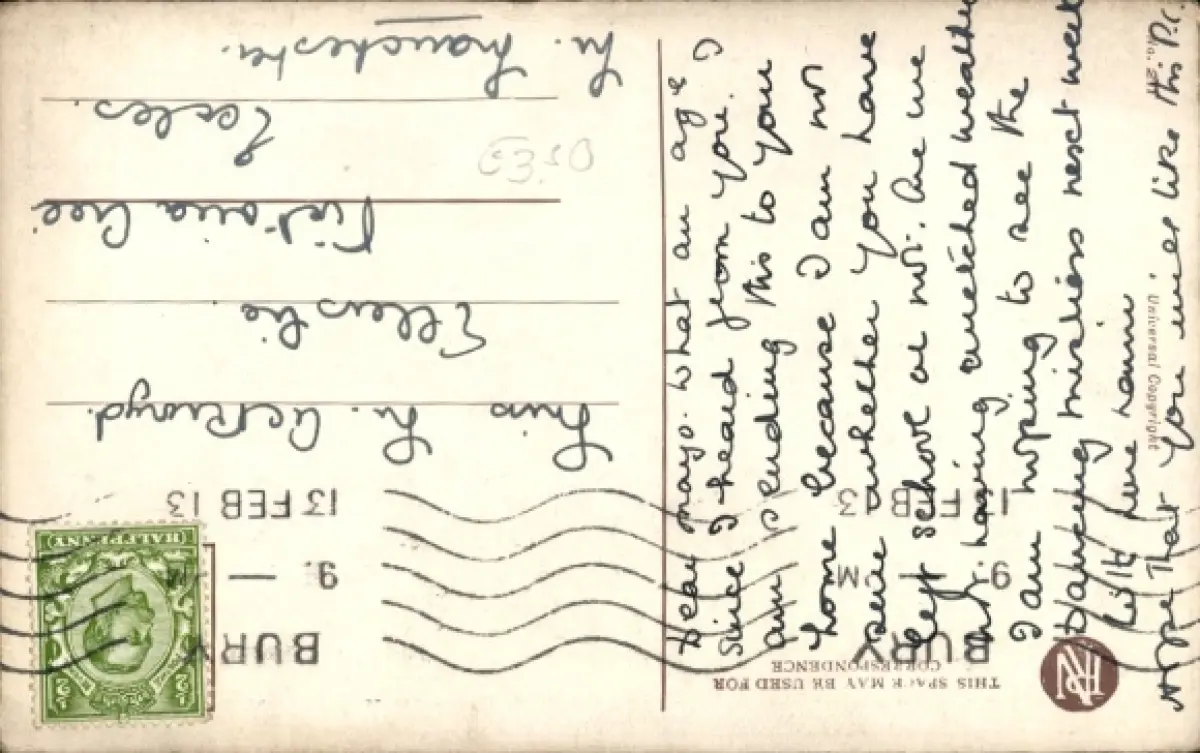 THIS SPACE MAY BE USED FOR
CORRESPONDENCE
BURY
9. —
13 FEB 13
HALFPENNY
½D
BURY
9 M
1 FEB 3
Miss M. Ackroyd.
Ellerslie
Victoria Cres
Eccles.
Nr. Manchester.
£3.50
Dear Mayo. What an age
since I heard from you. I
am sending this to your
home because I am not
sure whether you have
left school or not. Are we
not having wretched weather
I am hoping to see the
Dancing mistress next week
With love
Hope that you will like this P.C.
Universal Copyright
PN